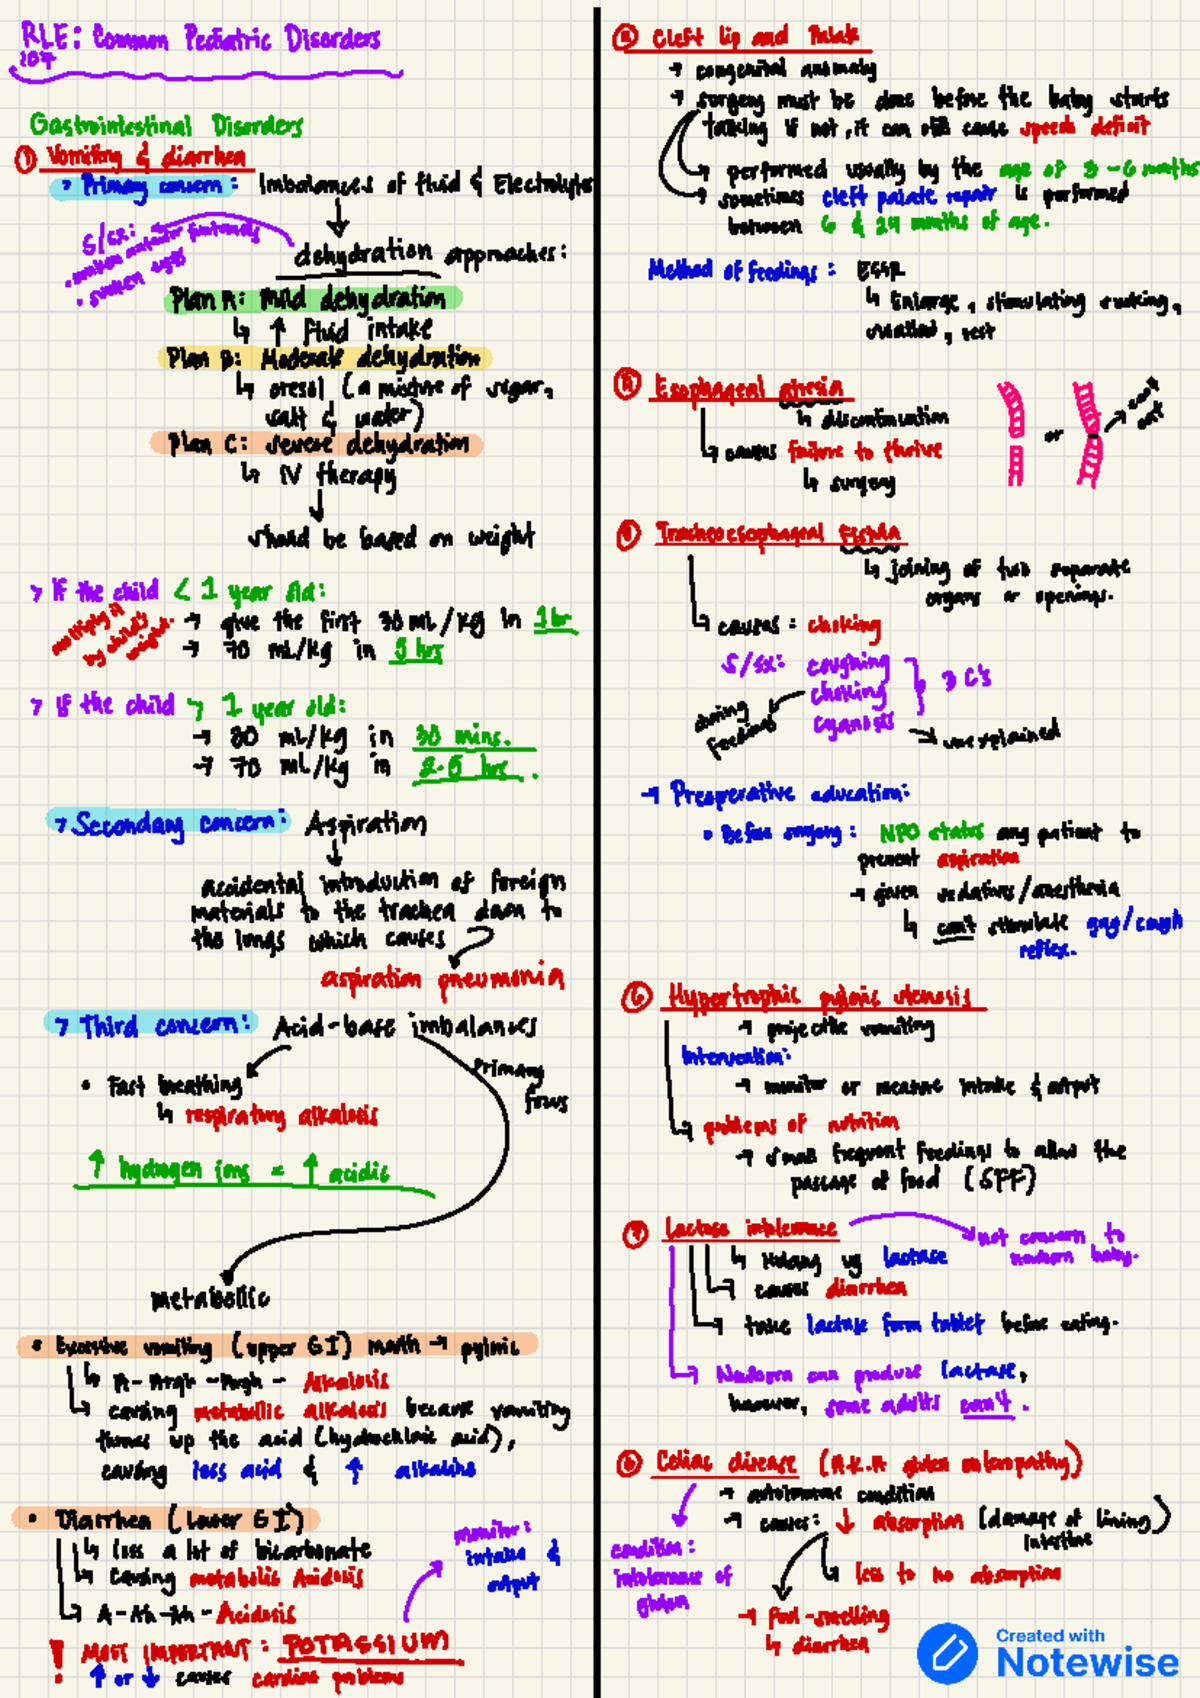 RLE: Common Pediatric Disorders
107
Gastrointestinal Disorders
① Vomiting & diarrhea
> Primary concern: Imbalances of fluid & Electrolytes
S/sx:
• sunken anterior fontanels
• sunken eyes
dehydration approaches:
Plan A: Mild dehydration
↳ ↑ fluid intake
Plan B: Moderate dehydration
↳ oresol (a mixture of sugar,
salt & water)
Plan C: severe dehydration
↳ IV therapy
should be based on weight
> If the child < 1 year old:
multiply it
by child's
weight.
→ give the first 30 mL/kg in 1 hr
→ 70 mL/kg in 5 hrs
> If the child > 1 year old:
→ 30 mL/kg in 30 mins.
→ 70 mL/kg in 2.5 hrs.
> Secondary concern: Aspiration
accidental introduction of foreign
materials to the trachea down to
the lungs which causes
aspiration pneumonia
> Third concern: Acid-base imbalances
primary
focus
• Fast breathing
↳ respiratory alkalosis
↑ hydrogen ions = ↑ acidic
metabolic
• Excessive vomiting (upper GI) mouth → pyloric
↳ A-Argk-Argh- Alkalosis
↳ causing metabolic alkalosis because vomiting
throws up the acid (hydrochloric acid),
causing loss acid & ↑ alkaline
• Diarrhea (Lower GI)
↳ loss a lot of bicarbonate
↳ causing metabolic Acidosis
↳ A-Ah-Ah-Acidosis
monitor:
intake &
output
! MOST IMPORTANT: POTASSIUM
↑ or ↓ causes cardiac problems
② Cleft lip and Palate
→ congenital anomaly
→ surgery must be done before the baby starts
talking if not, it can still cause speech deficit
→ performed usually by the age of 3-6 months
→ sometimes cleft palate repair is performed
between 6 & 24 months of age.
Method of feedings: ESSR
↳ Enlarge, stimulating sucking,
swallow, rest
Esophageal atresia
↳ discontinuation
↳ causes failure to thrive
↳ surgery
or
Tracheoesophageal Fistula
↳ joining of two separate
organs or openings.
↳ causes: choking
S/sx: coughing
choking
cyanosis
3 C's
during
feeding
→ unexplained
→ Preoperative education:
• Before surgery: NPO status any patient to
prevent aspiration
→ given sedatives/anesthesia
↳ can't stimulate gag/cough
reflex.
⑥ Hypertrophic pyloric stenosis
→ projectile vomiting
Intervention:
→ monitor or measure intake & output
↳ problems of nutrition
→ small frequent feedings to allow the
passage of food (SFF)
⑦ Lactose intolerance
→ not concern to
newborn baby.
↳ Kulang ug lactase
↳ causes diarrhea
→ take lactase form tablet before eating.
→ Newborn can produce lactase,
however, some adults can't.
Celiac disease (A.K.A gluten enteropathy)
→ autoimmune condition
→ causes: ↓ absorption (damage of lining)
intestine
condition:
intolerance of
gluten
↳ less to no absorption
→ foul-smelling
↳ diarrhea
Created with
Notewise